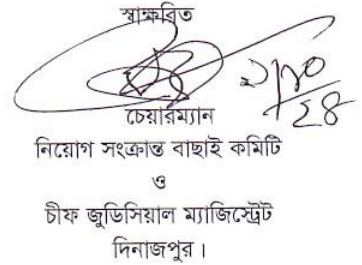 স্বাক্ষরিত
চেয়ারম্যান
নিয়োগ সংক্রান্ত বাছাই কমিটি
ও
চীফ জুডিসিয়াল ম্যাজিস্ট্রেট
দিনাজপুর।